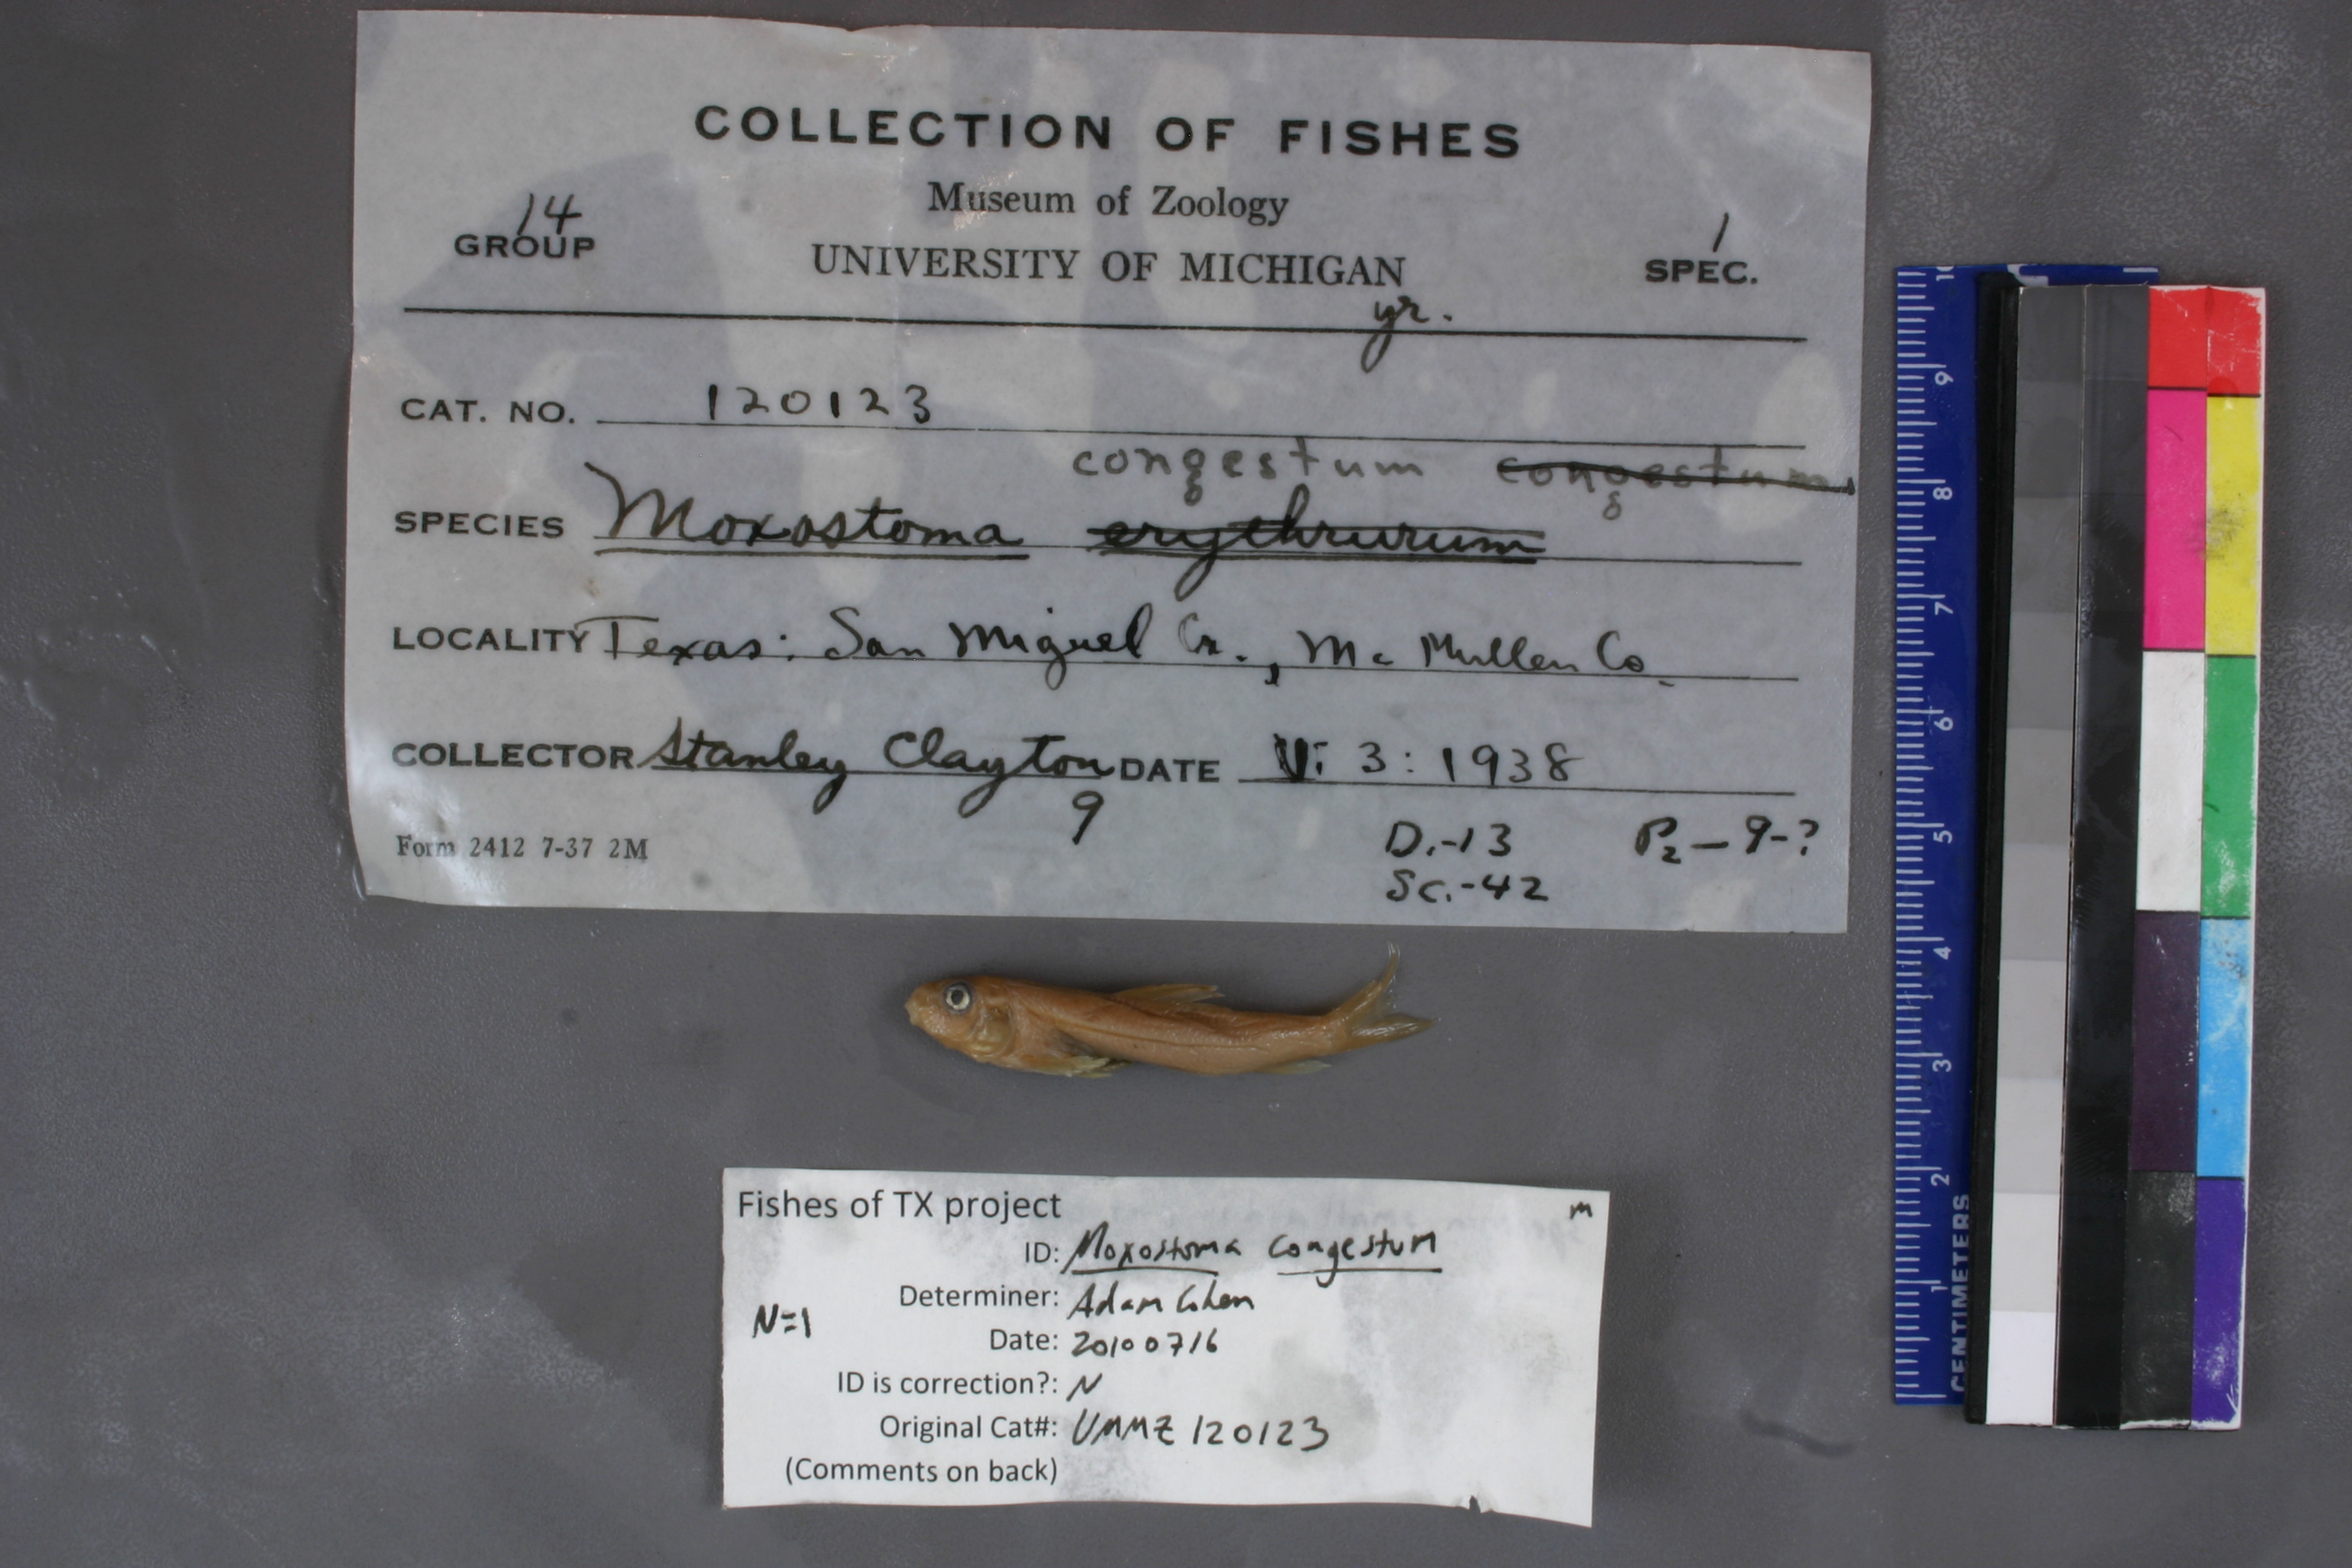 COLLECTION OF FISHES
Museum of Zoology
14
GROUP
UNIVERSITY OF MICHIGAN
1
SPEC.
yr.
CAT. NO. 120123
congestum congestum
SPECIES Moxostoma erythrurum
LOCALITY Texas: San Miguel Cr., McMullen Co.
COLLECTOR Stanley Clayton DATE V: 3: 1938
9
Form 2412 7-37 2M
D.-13 P2-9-?
Sc.-42
Fishes of TX project
m
ID: Moxostoma congestum
Determiner: Adam Cohen
N=1
Date: 20100716
ID is correction?: N
Original Cat#: UMMZ 120123
(Comments on back)
10
9
8
7
6
5
4
3
2
1
CENTIMETERS